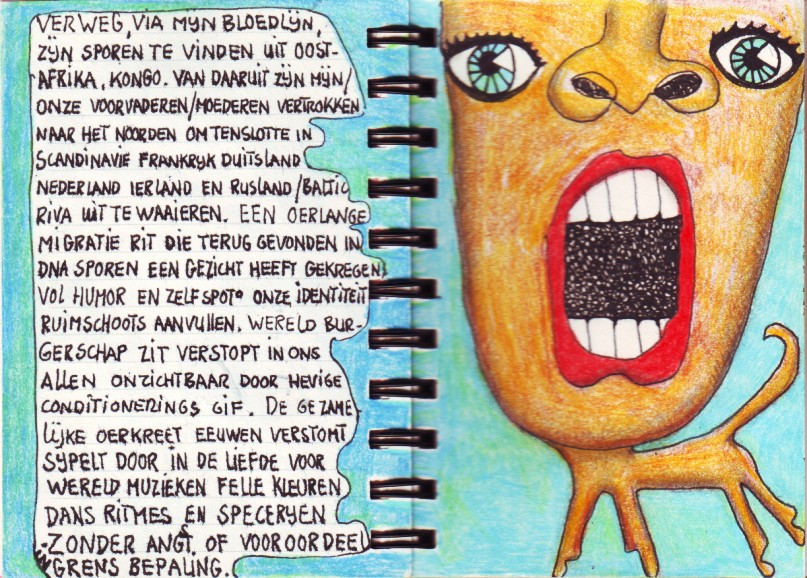 VER WEG, VIA MIJN BLOEDLIJN,
ZIJN SPOREN TE VINDEN UIT OOST-
AFRIKA, KONGO. VAN DAARUIT ZIJN MIJN/
ONZE VOORVADEREN/MOEDEREN VERTROKKEN
NAAR HET NOORDEN OM TENSLOTTE IN
SCANDINAVIE FRANKRIJK DUITSLAND
NEDERLAND IERLAND EN RUSLAND/BALTIC
RIVA UIT TE WAAIEREN. EEN OERLANGE
MIGRATIE RIT DIE TERUG GEVONDEN IN
DNA SPOREN EEN GEZICHT HEEFT GEKREGEN
VOL HUMOR EN ZELFSPOT. ONZE IDENTITEIT
RUIMSCHOOTS AANVULLEN. WERELD BUR-
GERSCHAP ZIT VERSTOPT IN ONS
ALLEN ONZICHTBAAR DOOR HEVIGE
CONDITIONERINGS GIF. DE GEZAME-
LIJKE OERKREET EEUWEN VERSTOMT
SYPELT DOOR IN DE LIEFDE VOOR
WERELD MUZIEKEN FELLE KLEUREN
DANS RITMES EN SPECERYEN
ZONDER ANGST OF VOOROORDEEL
IN GRENS BEPALING.